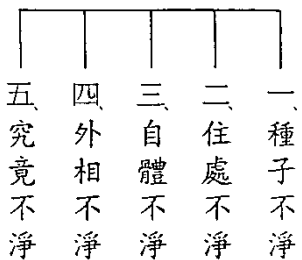 一、種子不淨
二、住處不淨
三、自體不淨
四、外相不淨
五、究竟不淨